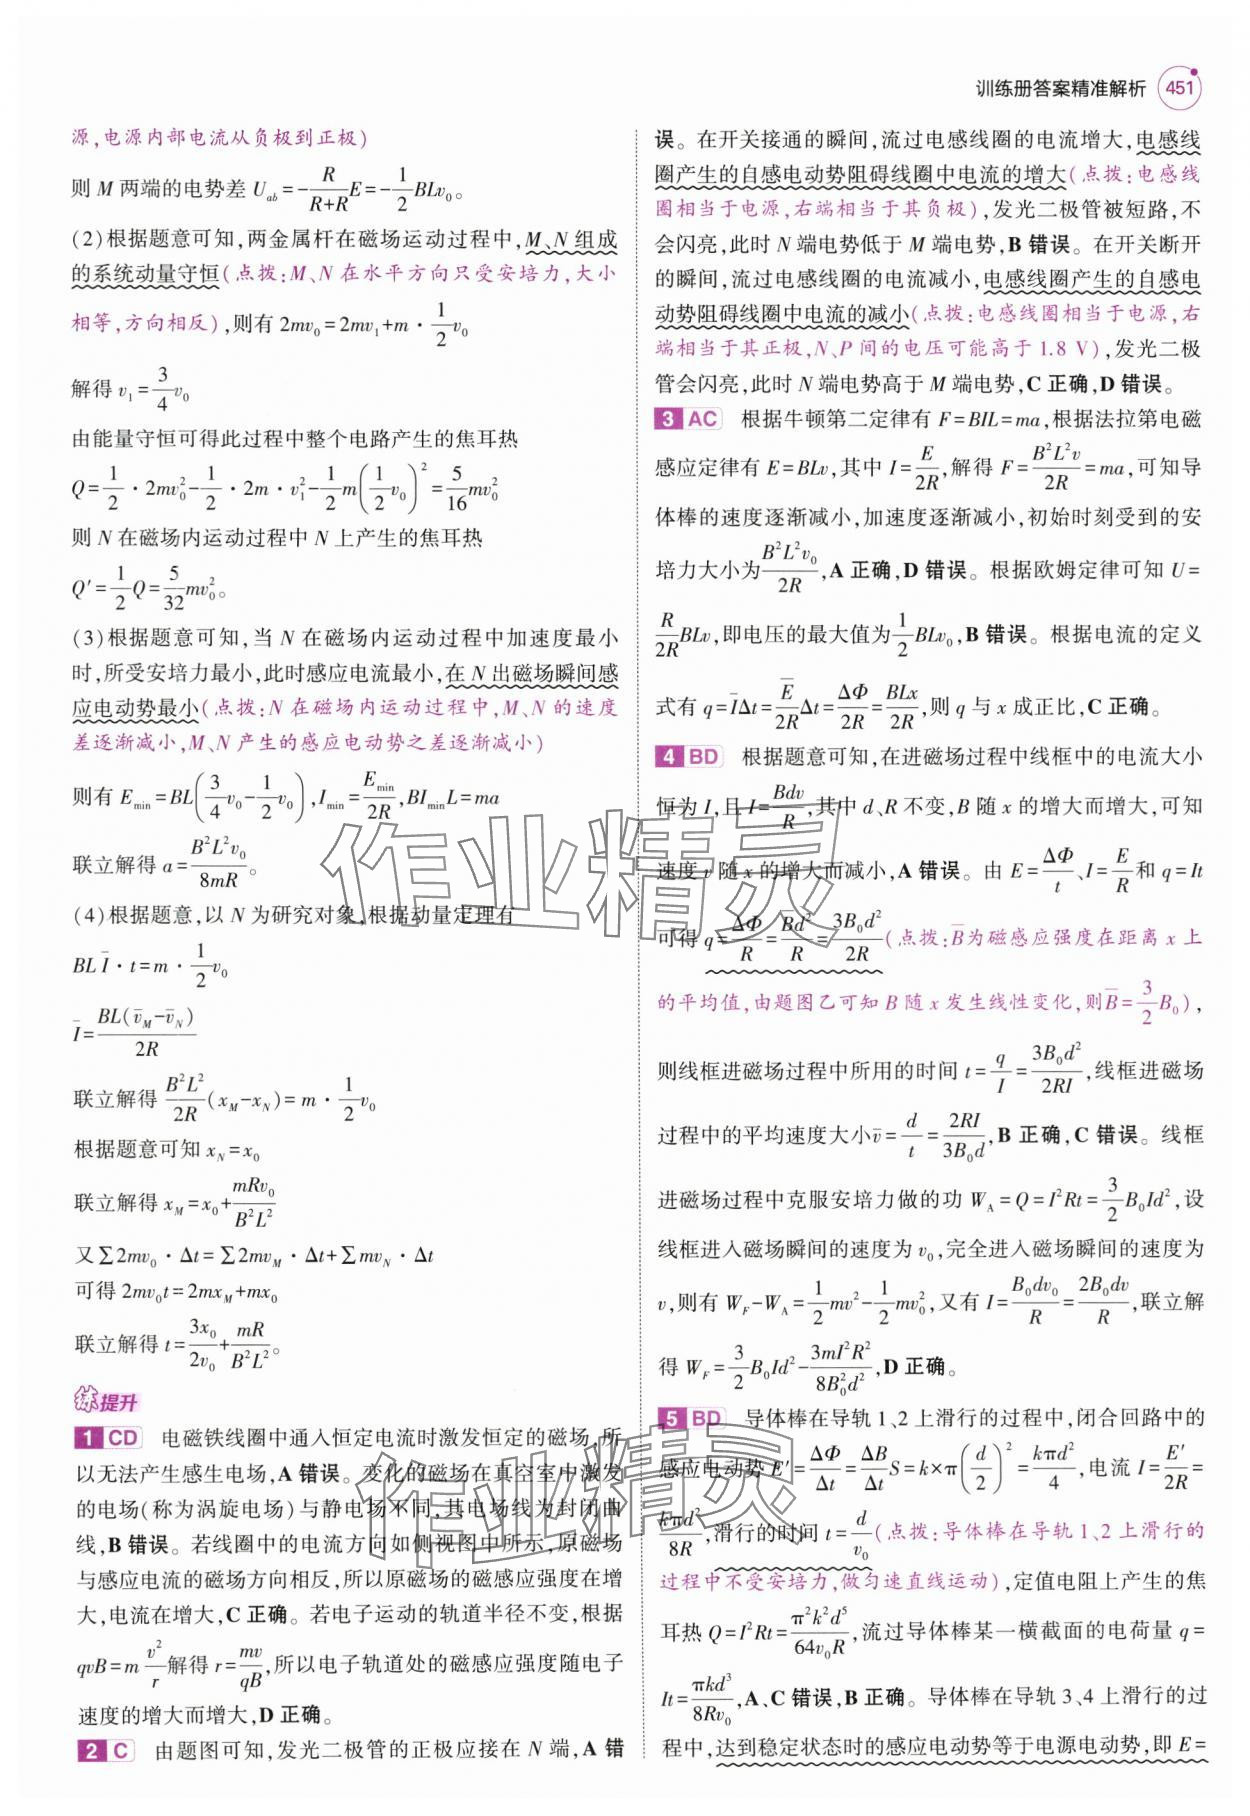 训练册答案精准解析 451
源,电源内部电流从负极到正极)
则 M 两端的电势差 U_ab=-R/(R+R)E=-1/2BLv₀。
(2)根据题意可知,两金属杆在磁场运动过程中,M、N 组成
的系统动量守恒(点拨:M、N 在水平方向只受安培力,大小
相等,方向相反),则有 2mv₀=2mv₁+m·1/2v₀
解得 v₁=3/4v₀
由能量守恒可得此过程中整个电路产生的焦耳热
Q=1/2·2mv₀²-1/2·2m·v₁²-1/2m(1/2v₀)²=5/16mv₀²
则 N 在磁场内运动过程中 N 上产生的焦耳热
Q′=1/2Q=5/32mv₀²。
(3)根据题意可知,当 N 在磁场内运动过程中加速度最小
时,所受安培力最小,此时感应电流最小,在 N 出磁场瞬间感
应电动势最小(点拨:N 在磁场内运动过程中,M、N 的速度
差逐渐减小,M、N 产生的感应电动势之差逐渐减小)
则有 E_min=BL(3/4v₀-1/2v₀),I_min=E_min/2R,BI_minL=ma
联立解得 a=B²L²v₀/8mR。
(4)根据题意,以 N 为研究对象,根据动量定理有
BLI̅·t=m·1/2v₀
I̅=BL(v̅_M-v̅_N)/2R
联立解得 B²L²/2R(x_M-x_N)=m·1/2v₀
根据题意可知 x_N=x₀
联立解得 x_M=x₀+mRv₀/B²L²
又∑2mv₀·Δt=∑2mv_M·Δt+∑mv_N·Δt
可得 2mv₀t=2mx_M+mx₀
联立解得 t=3x₀/2v₀+mR/B²L²。
练提升
1 CD 电磁铁线圈中通入恒定电流时激发恒定的磁场,所
以无法产生感生电场,A 错误。变化的磁场在真空室中激发
的电场(称为涡旋电场)与静电场不同,其电场线为封闭曲
线,B 错误。若线圈中的电流方向如侧视图中所示,原磁场
与感应电流的磁场方向相反,所以原磁场的磁感应强度在增
大,电流在增大,C 正确。若电子运动的轨道半径不变,根据
qvB=m v²/r 解得 r=mv/qB,所以电子轨道处的磁感应强度随电子
速度的增大而增大,D 正确。
2 C 由题图可知,发光二极管的正极应接在 N 端,A 错
误。在开关接通的瞬间,流过电感线圈的电流增大,电感线
圈产生的自感电动势阻碍线圈中电流的增大(点拨:电感线
圈相当于电源,右端相当于其负极),发光二极管被短路,不
会闪亮,此时 N 端电势低于 M 端电势,B 错误。在开关断开
的瞬间,流过电感线圈的电流减小,电感线圈产生的自感电
动势阻碍线圈中电流的减小(点拨:电感线圈相当于电源,右
端相当于其正极,N、P 间的电压可能高于 1.8 V),发光二极
管会闪亮,此时 N 端电势高于 M 端电势,C 正确,D 错误。
3 AC 根据牛顿第二定律有 F=BIL=ma,根据法拉第电磁
感应定律有 E=BLv,其中 I=E/2R,解得 F=B²L²v/2R=ma,可知导
体棒的速度逐渐减小,加速度逐渐减小,初始时刻受到的安
培力大小为B²L²v₀/2R,A 正确,D 错误。根据欧姆定律可知 U=
R/2R BLv,即电压的最大值为1/2BLv₀,B 错误。根据电流的定义
式有 q=I̅Δt=E̅/2RΔt=ΔΦ/2R=BLx/2R,则 q 与 x 成正比,C 正确。
4 BD 根据题意可知,在进磁场过程中线框中的电流大小
恒为 I,且 I=Bdv/R,其中 d、R 不变,B 随 x 的增大而增大,可知
速度 v 随 x 的增大而减小,A 错误。由 E=ΔΦ/t、I=E/R和 q=It
可得 q=ΔΦ/R=B̅d²/R=3B₀d²/2R(点拨:B̅为磁感应强度在距离 x 上
的平均值,由题图乙可知 B 随 x 发生线性变化,则B̅=3/2B₀),
则线框进磁场过程中所用的时间 t=q/I=3B₀d²/2RI,线框进磁场
过程中的平均速度大小v̅=d/t=2RI/3B₀d,B 正确,C 错误。线框
进磁场过程中克服安培力做的功 W_A=Q=I²Rt=3/2B₀Id²,设
线框进入磁场瞬间的速度为 v₀,完全进入磁场瞬间的速度为
v,则有 W_F-W_A=1/2mv²-1/2mv₀²,又有 I=B₀dv₀/R=2B₀dv/R,联立解
得 W_F=3/2B₀Id²-3mI²R²/8B₀²d²,D 正确。
5 BD 导体棒在导轨 1、2 上滑行的过程中,闭合回路中的
感应电动势 E′=ΔΦ/Δt=ΔB/Δt S=k×π(d/2)²=kπd²/4,电流 I=E′/2R=
kπd²/8R,滑行的时间 t=d/v₀(点拨:导体棒在导轨 1、2 上滑行的
过程中不受安培力,做匀速直线运动),定值电阻上产生的焦
耳热 Q=I²Rt=π²k²d⁵/64v₀R,流过导体棒某一横截面的电荷量 q=
It=πkd³/8Rv₀,A、C 错误,B 正确。导体棒在导轨 3、4 上滑行的过
程中,达到稳定状态时的感应电动势等于电源电动势,即 E=
作业精灵
作业精灵